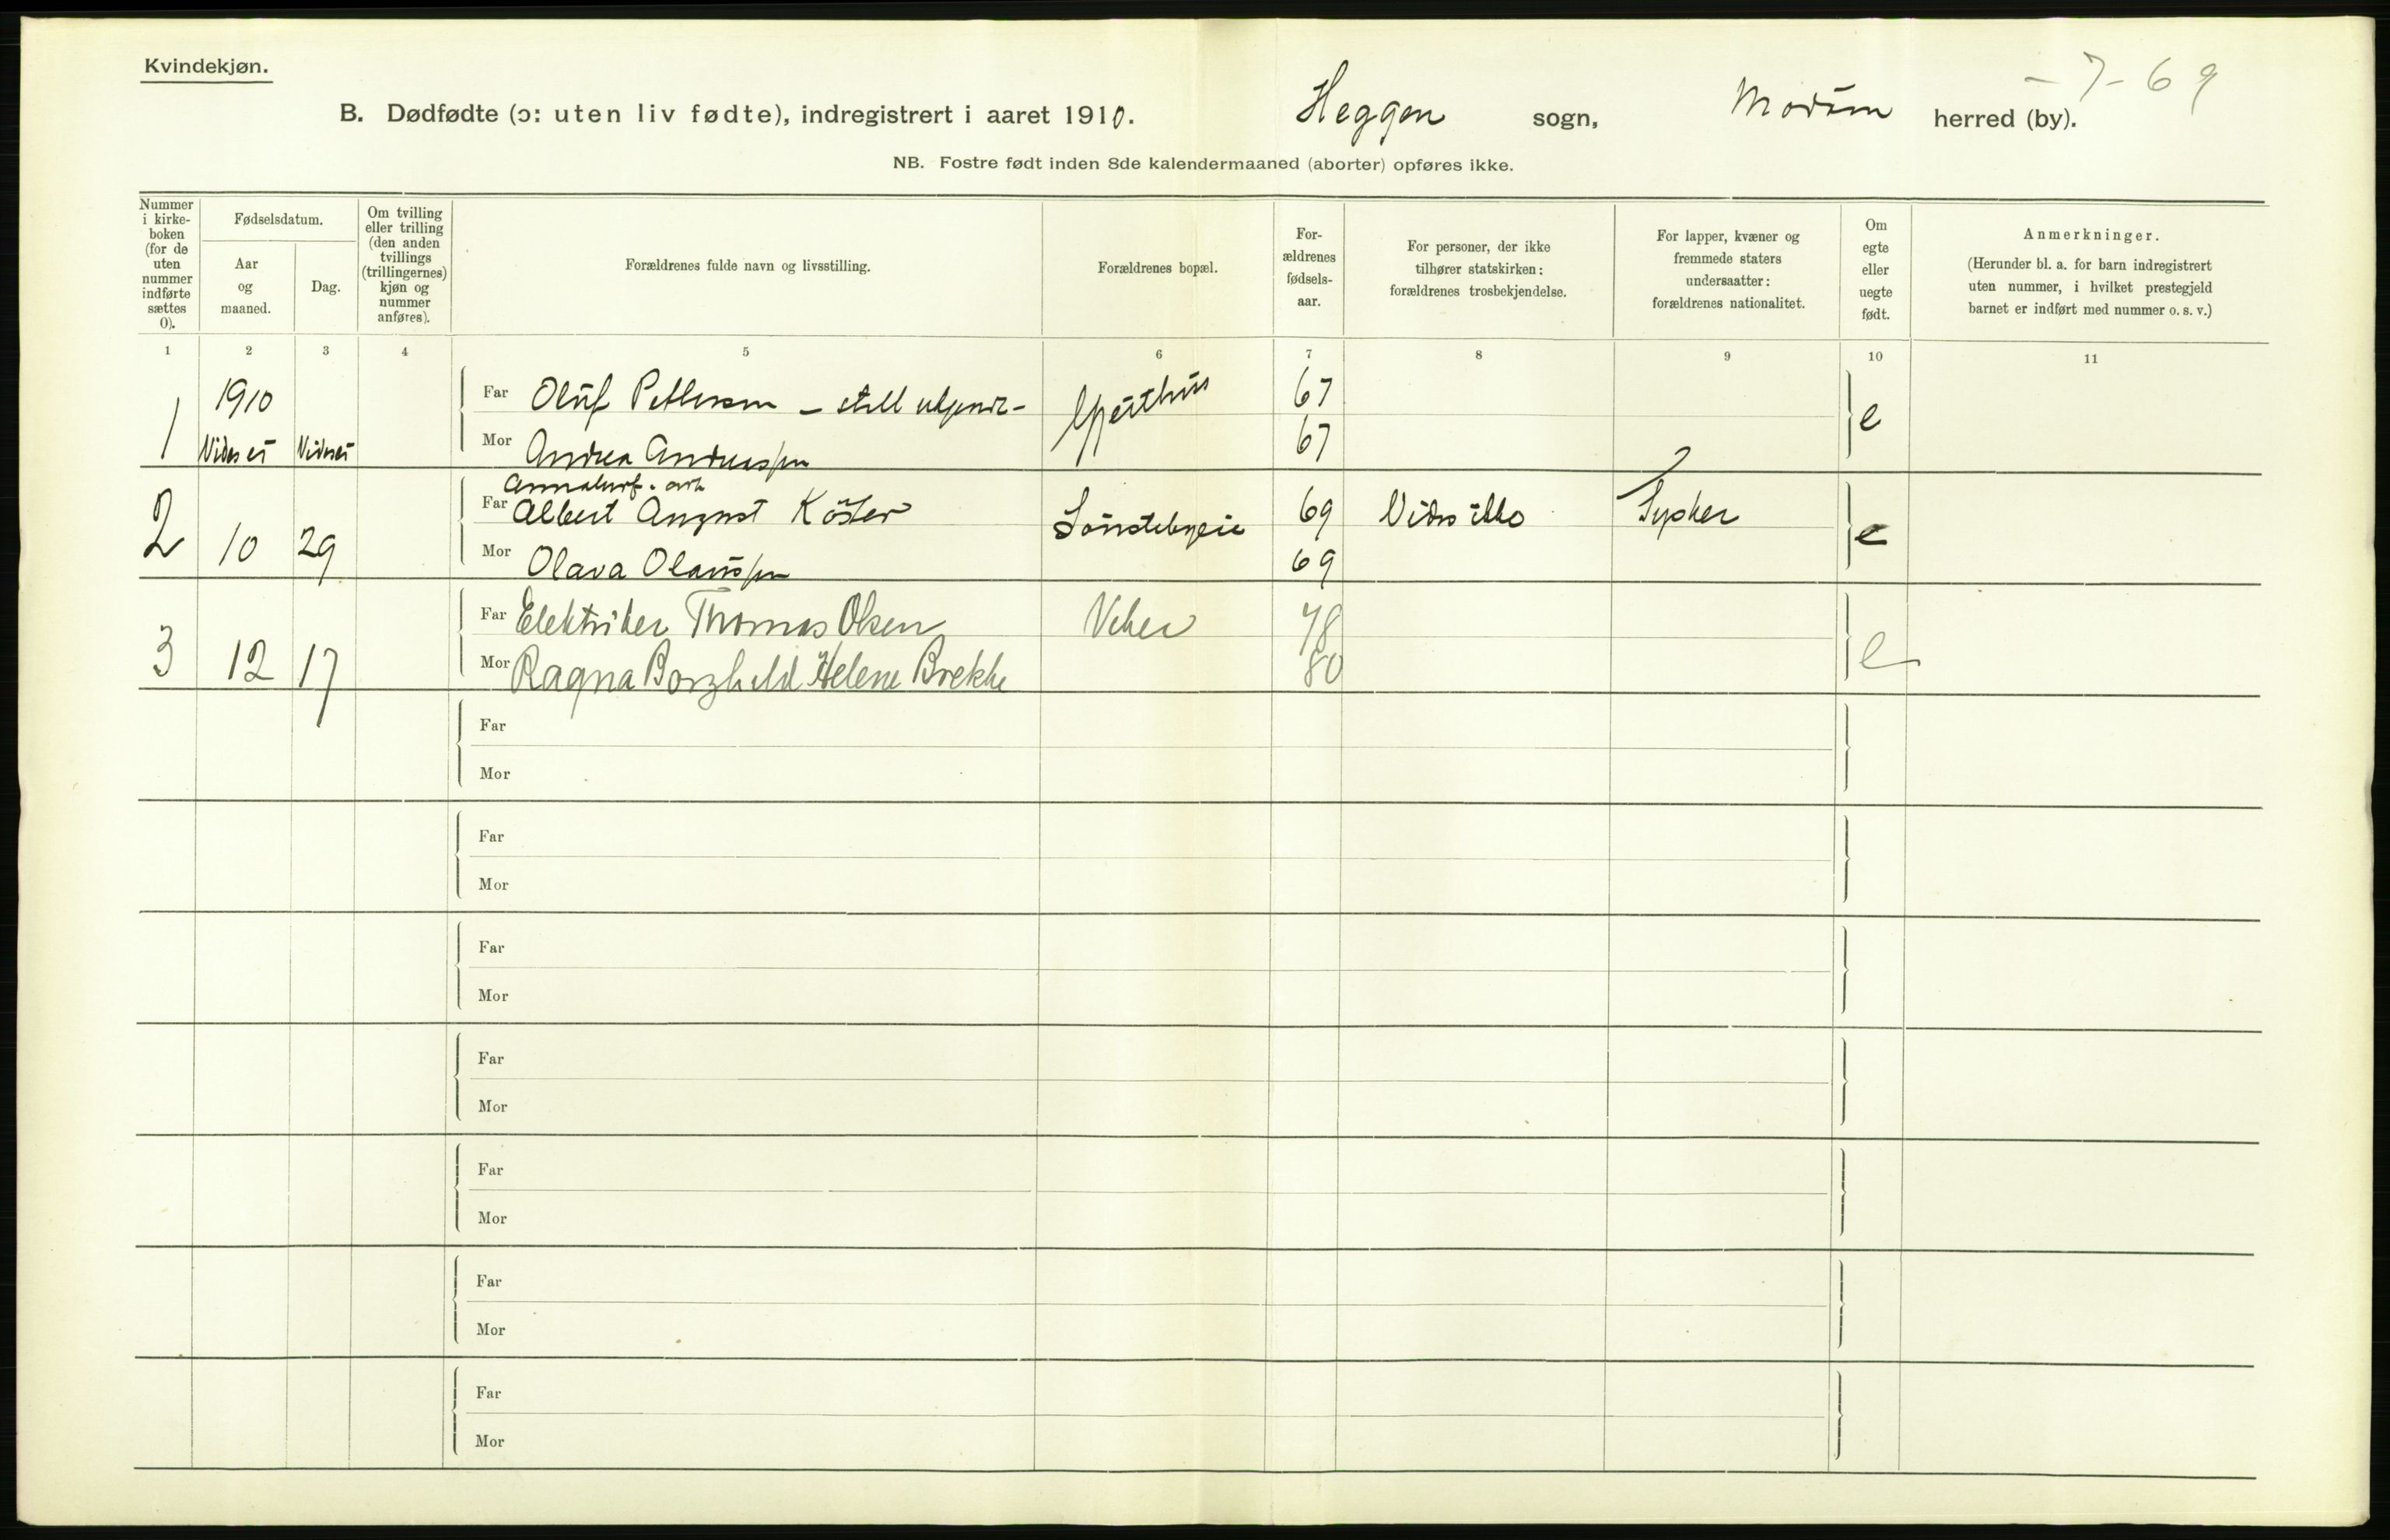 Kvindekjøn.
- 7 - 69
B. Dødfødte (ɔ: uten liv fødte), indregistrert i aaret 1910. Heggen sogn, Modum herred (by).
NB. Fostre født inden 8de kalendermaaned (aborter) opføres ikke.
Nummer i kirke- boken (for de uten nummer indførte sættes 0).
Fødselsdatum.
Aar og maaned.
Dag.
Om tvilling eller trilling (den anden tvillings (trillingernes) kjøn og nummer anføres).
Forældrenes fulde navn og livsstilling.
Forældrenes bopæl.
For- ældrenes fødsels- aar.
For personer, der ikke tilhører statskirken: forældrenes trosbekjendelse.
For lapper, kvæner og fremmede staters undersaatter: forældrenes nationalitet.
Om egte eller uegte født.
Anmerkninger.
(Herunder bl. a. for barn indregistrert uten nummer, i hvilket prestegjeld barnet er indført med nummer o. s. v.)
1 2 3 4 5 6 7 8 9 10 11
1910
Far Oluf Pettersen 67
1 Mor Andrea Andreassen 67 e
Far Albert August Köster 69 Vides ikke Tysker
2 10 29 Mor Olava Olaussen 69 e
Far Elektriker Thomas Olsen Viker 78
3 12 17 Mor Ragna Borghild Helene Brekke 80 e
Far
Mor
Far
Mor
Far
Mor
Far
Mor
Far
Mor
Far
Mor
Far
Mor